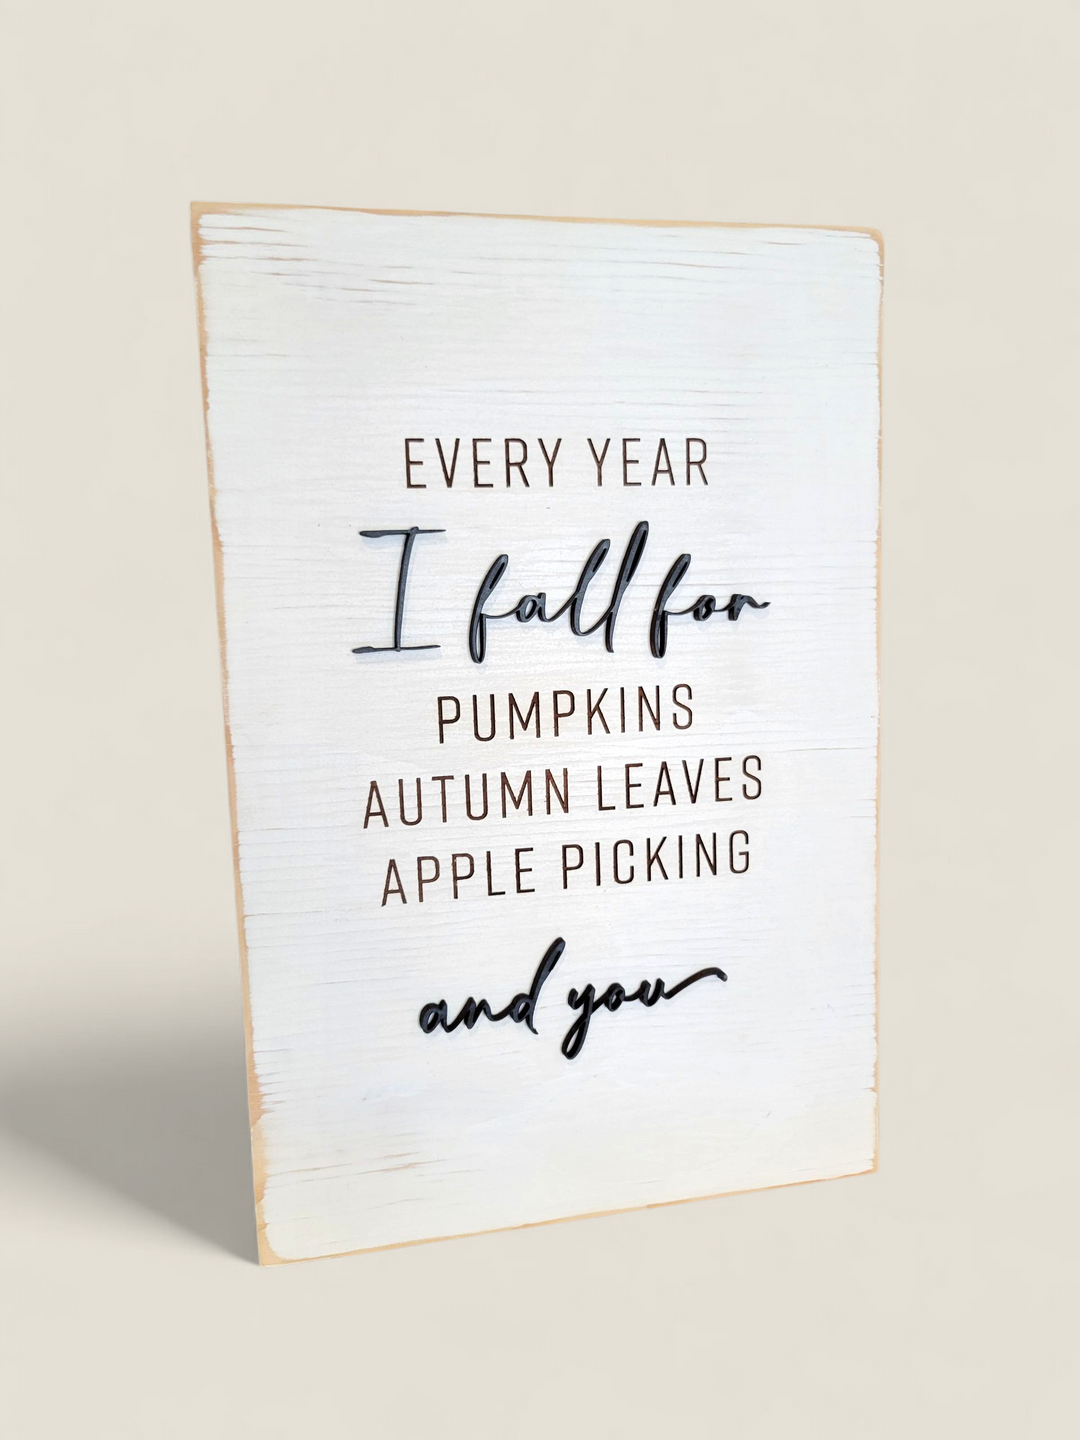 EVERY YEAR
I fall for
PUMPKINS
AUTUMN LEAVES
APPLE PICKING
and you